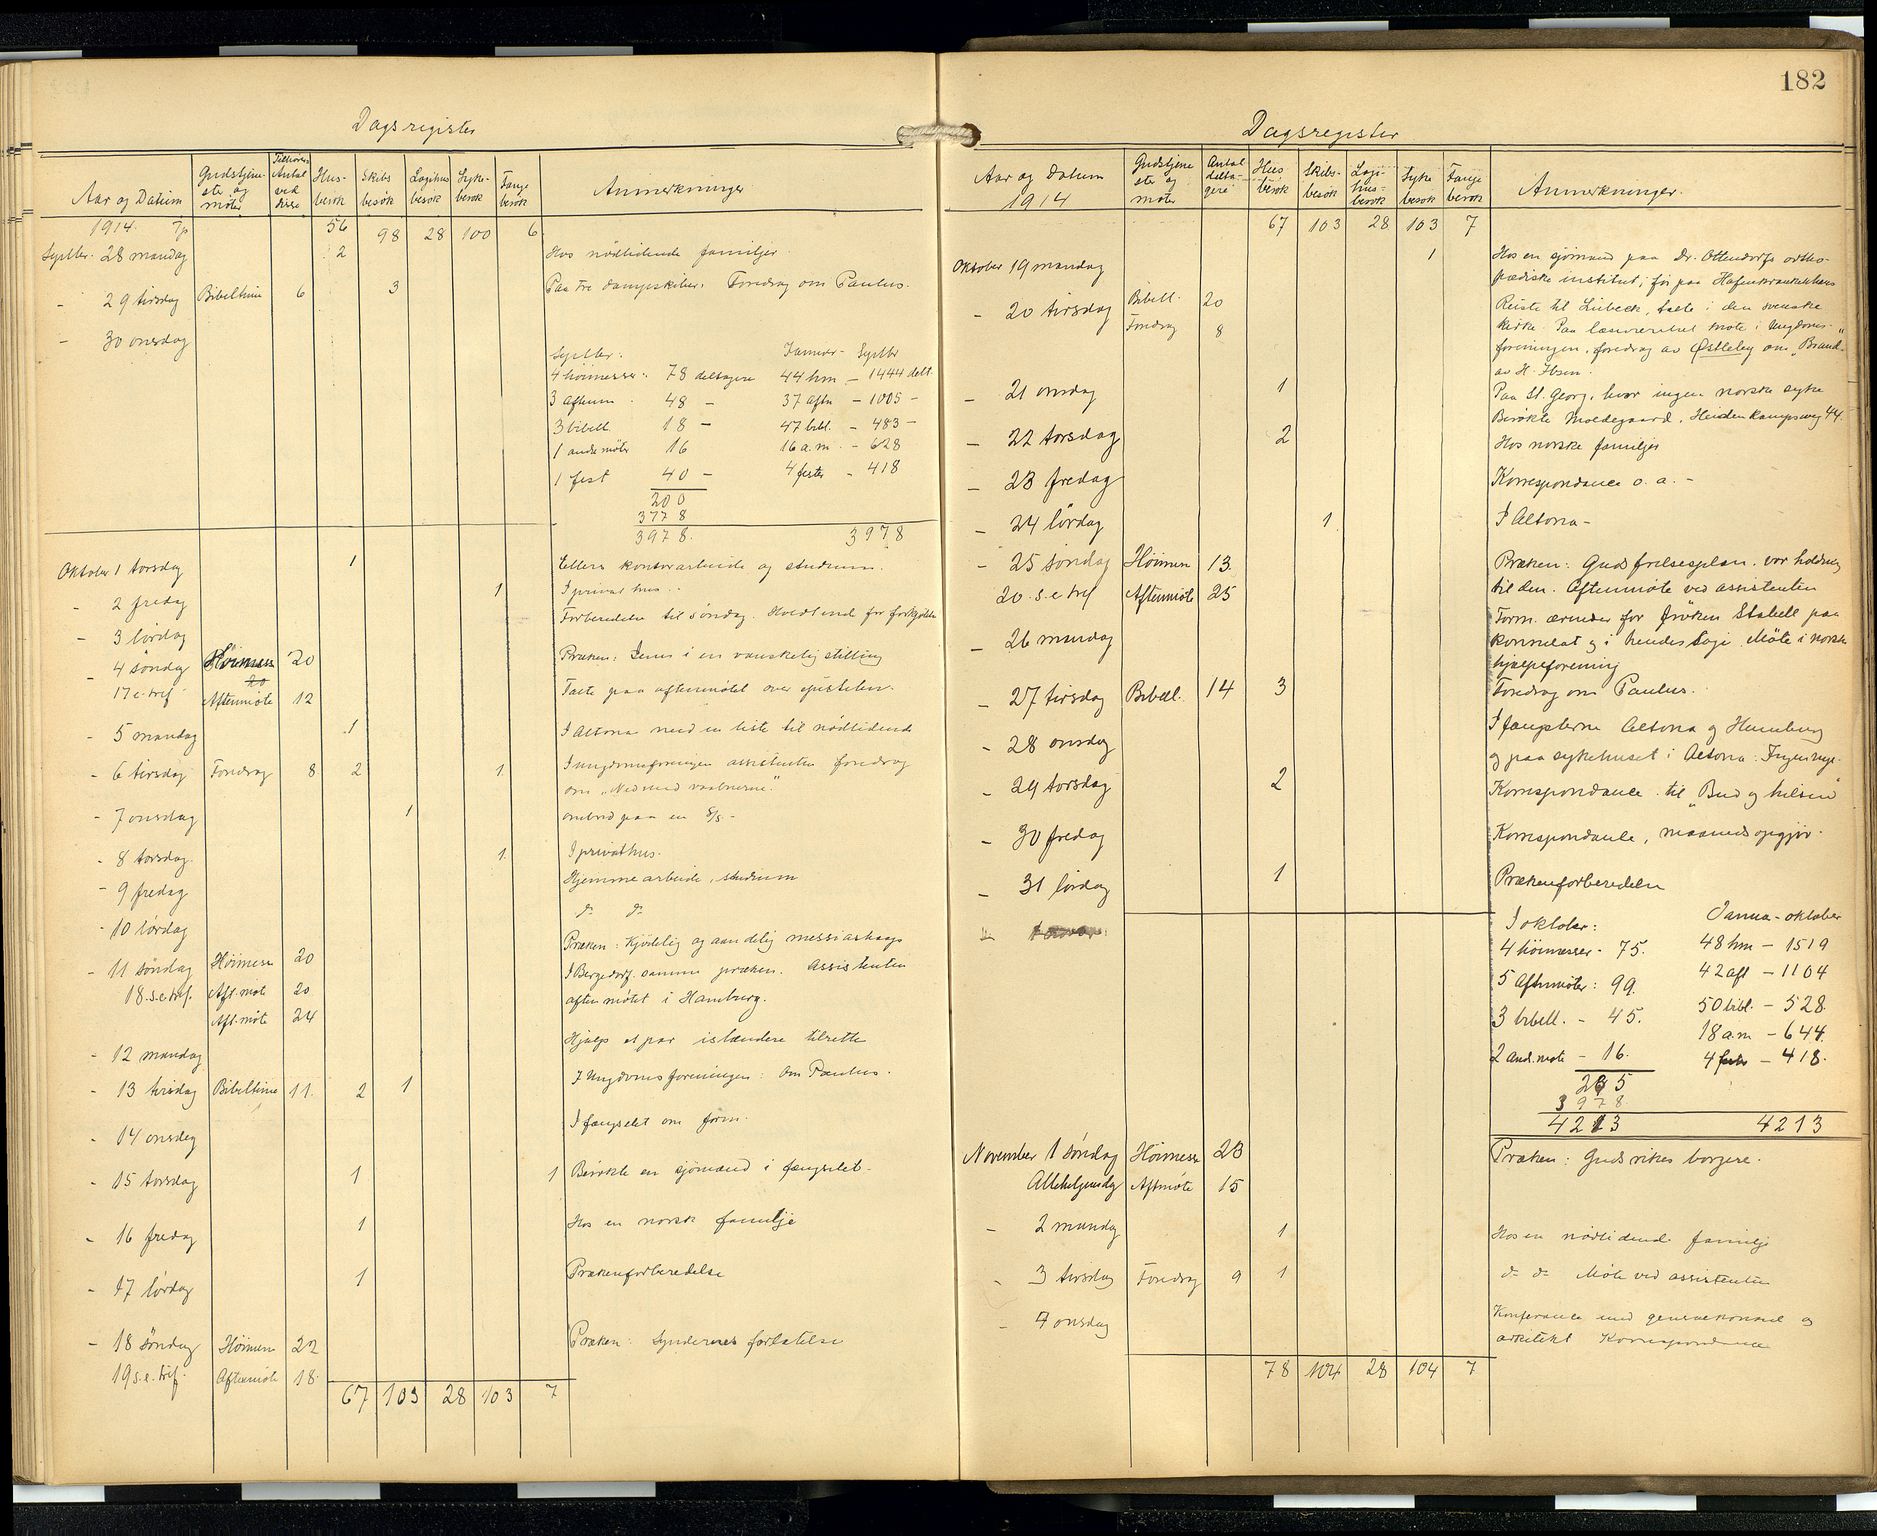 Dagsregister
Aar og Datum Gudstjeneste og møter Tilhører Antal ved disse Husbesøk Skibsbesøk Logihusbesøk Sykebesøk Fangebesøk Anmerkninger
1914. Tp 56 98 28 100 6
Septbr. 28 mandag 2 Hos nødlidende familjer
- 29 tirsdag Bibeltime 6 3 Paa tre dampskiber. Foredrag om Paulus.
- 30 onsdag
Septbr: Januar - Septbr
4 høimesser: 78 deltagere 44 hm - 1444 delt.
3 aftenm. 48 - 37 aftn - 1005 -
3 bibelt 18 - 47 bibl. - 483 -
1 andr møter 16 16 a.m. - 628
1 fest 40 - 4 fester - 418
200
3778
3978. 3978
Oktober 1 torsdag 1 Ellers kontorarbeide og studium.
- 2 fredag 1 I privathus.
- 3 lørdag Forberedelse til søndag. Hvedlund for forkjølet
- 4 søndag Høimesse 20 Præken: Jesus i en vanskelig stilling
17 e. tref. Aftenmøte 12 Talte paa aftenmøtet over epistelen.
- 5 mandag 1 I Altona med en liste til nødlidende
- 6 tirsdag Foredrag 8 2 1. I ungdomsforeningen assistenten foredrag
om "Ned med vaabnene".
- 7 onsdag 1 ombord paa en S/S -
- 8 torsdag. 1. I privathus.
- 9 fredag Hjemmearbeide, studium
- 10 lørdag do do
- 11 søndag Høimesse 20 Præken: Kjødelig og aandelig messiashaap
18. s.e. tref. Aft. møte 20 I Bergedorf samme præken. Assistenten
Aft. møte 24 aftenmøtet i Hamburg.
- 12 mandag Hjalp et par islændere tilrette
- 13 tirsdag Bibeltime 11. 2 1 I Ungdomsforeningen: Om Paulus.
- 14 onsdag I fængselet om form.
- 15 torsdag 1 1 Besøkte en sjømand i fængslet -
- 16 fredag 1 Hos en norsk familje
- 17 lørdag 1 Prækenforberedelse
- 18 søndag Høimesse 22 Præken: Syndernes forlatelse
19 s.e. tref. Aftenmøte 18.
67 103 28 103 7
182
Dagsregister
Aar og Datum 1914 Gudstjeneste og møter Antal deltagere Husbesøk Skibsbesøk Logihusbesøk Sykebesøk Fangebesøk Anmerkninger.
67 103 28 103 7
Oktober 19 mandag 1 Hos en sjømand paa Dr. Ottendorfs orthopædiske institut, før paa Hafenkrankenhaus
- 20 tirsdag Bibelt. 20 Reiste til Lübeck, talte i den svenske
Foredrag 8 kirke. Paa læseværelset møte i Ungdomsforeningen, foredrag av Østleby om "Brand"
av H. Ibsen.
- 21 onsdag 1 Paa St. Georg, hvor ingen norske syke
Besøkte Moldegaard, Heidenkampsweg 44.
- 22 torsdag 2 Hos norske familjer
- 23 fredag Korrespondance o. a. -
- 24 lørdag 1 I Altona -
- 25 søndag Høimesse 13. Præken: Guds frelsesplan, vor holdning
20. s. e tref Aftenmøte 25 til den. Aftenmøte ved assistenten
- 26 mandag Form. ærender for frøken Stabell paa
konsulat og i hendes logi. Møte i norske
hjælpeforening
- 27 tirsdag Bibelt. 14 3 Foredrag om Paulus.
- 28 onsdag I fængslerne Altona og Hamburg
og paa sykehuset i Altona:
- 29 torsdag 2 Korrespondance til "Bud og hilsen"
- 30 fredag Korrespondance, maanedsopgjør.
- 31 lørdag 1 Prækenforberedelse
I oktober: Janua - oktober
4 høimesser - 75. 48 hm - 1519
5 Aftenmøter: 99. 42 aft - 1104
3 bibelt. - 45. 50 bibl. - 528.
2 and. møte - 16. 18 a.m - 644.
4 fester - 418.
235
3978.
4213 4213
November 1 søndag Høimesse 23 Præken: Guds rikes borgere.
Allehelgensdag Aftmøte 15
- 2 mandag 1 Hos en nødlidende familje
- 3 tirsdag Foredrag 9 1 do do Møte ved assistenten
- 4 onsdag Konferance med generalkonsul og
arkitekt Korrespondance
78 104 28 104 7